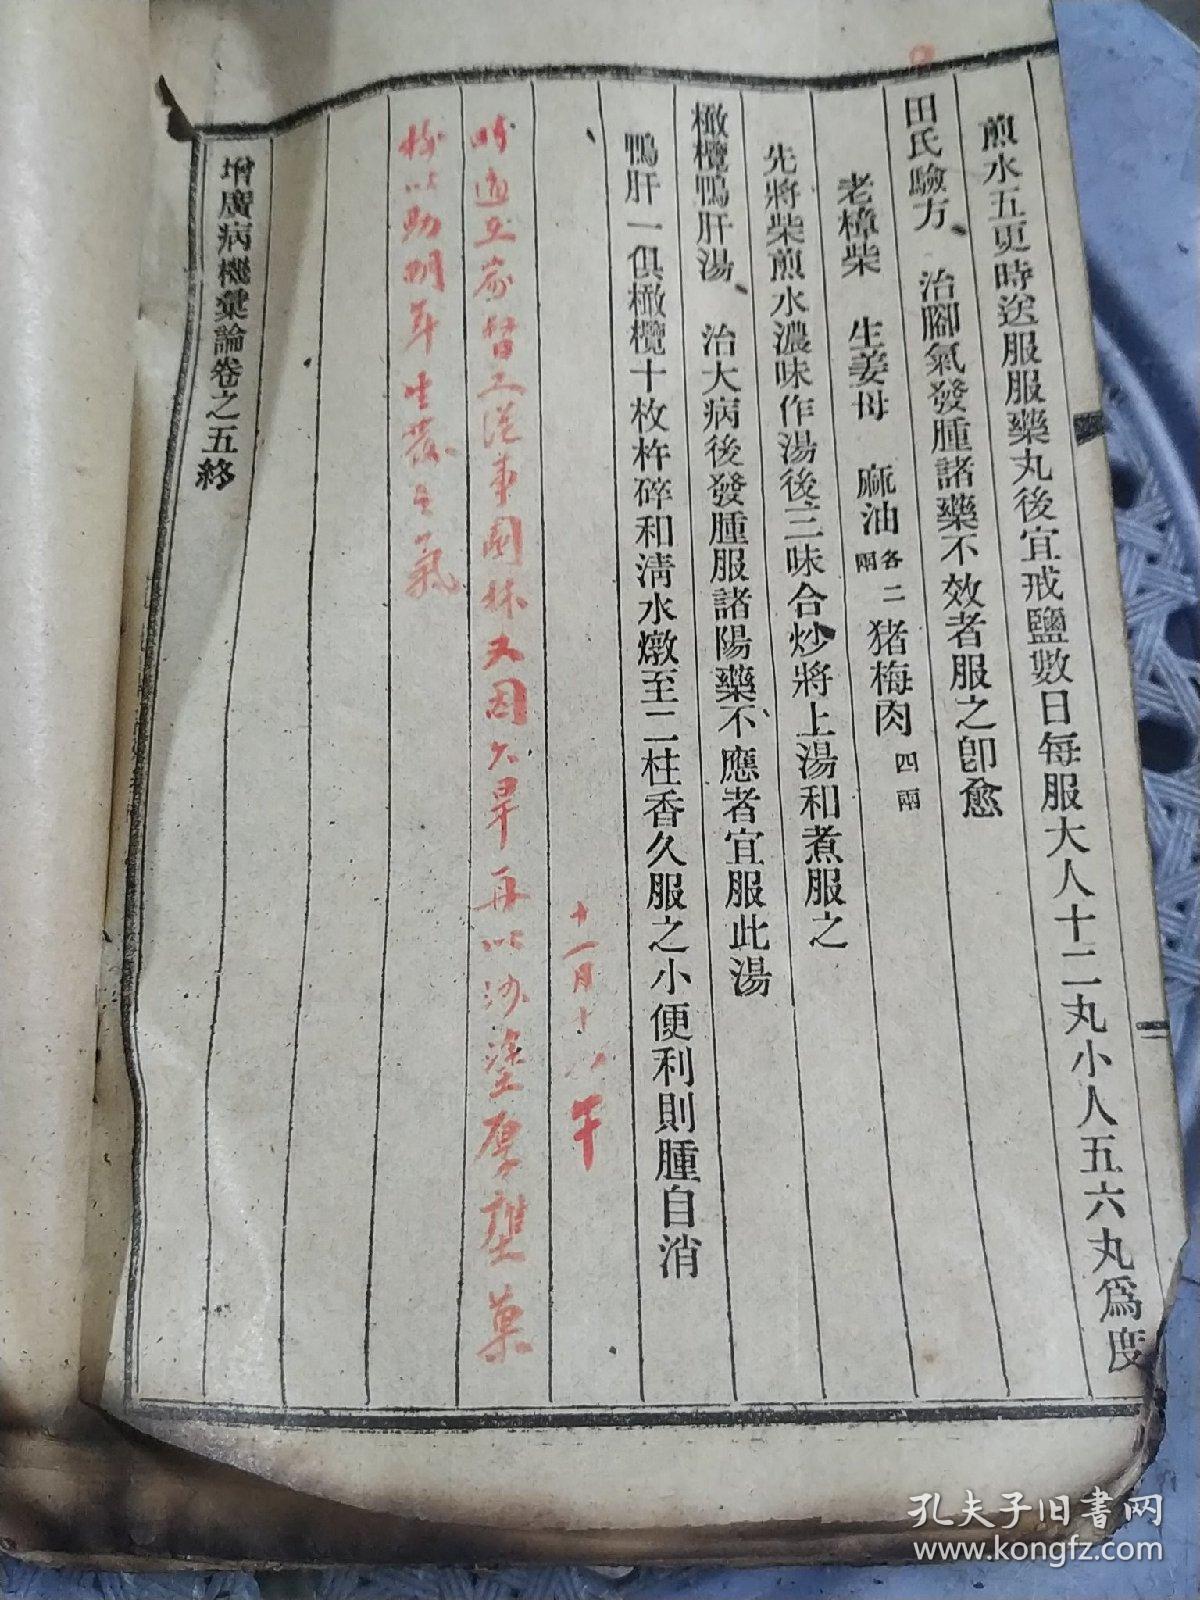 煎水五更時送服服藥丸後宜戒鹽數日每服大人十二丸小人五六丸爲度
田氏驗方、 治腳氣發腫諸藥不效者服之卽愈
老樟柴 生姜母 麻油各二兩 猪梅肉四兩
先將柴煎水濃味作湯後三味合炒將上湯和煮服之
橄欖鴨肝湯、 治大病後發腫服諸陽藥不應者宜服此湯
鴨肝一俱橄欖十枚杵碎和淸水燉至二柱香久服之小便利則腫自消
十一月十八午
時適在家督工從事園林又因久旱再以沙塗厚壅菓
樹以助明年生發之氣
增廣病機彙論卷之五終
孔夫子旧書网
www.kongfz.com